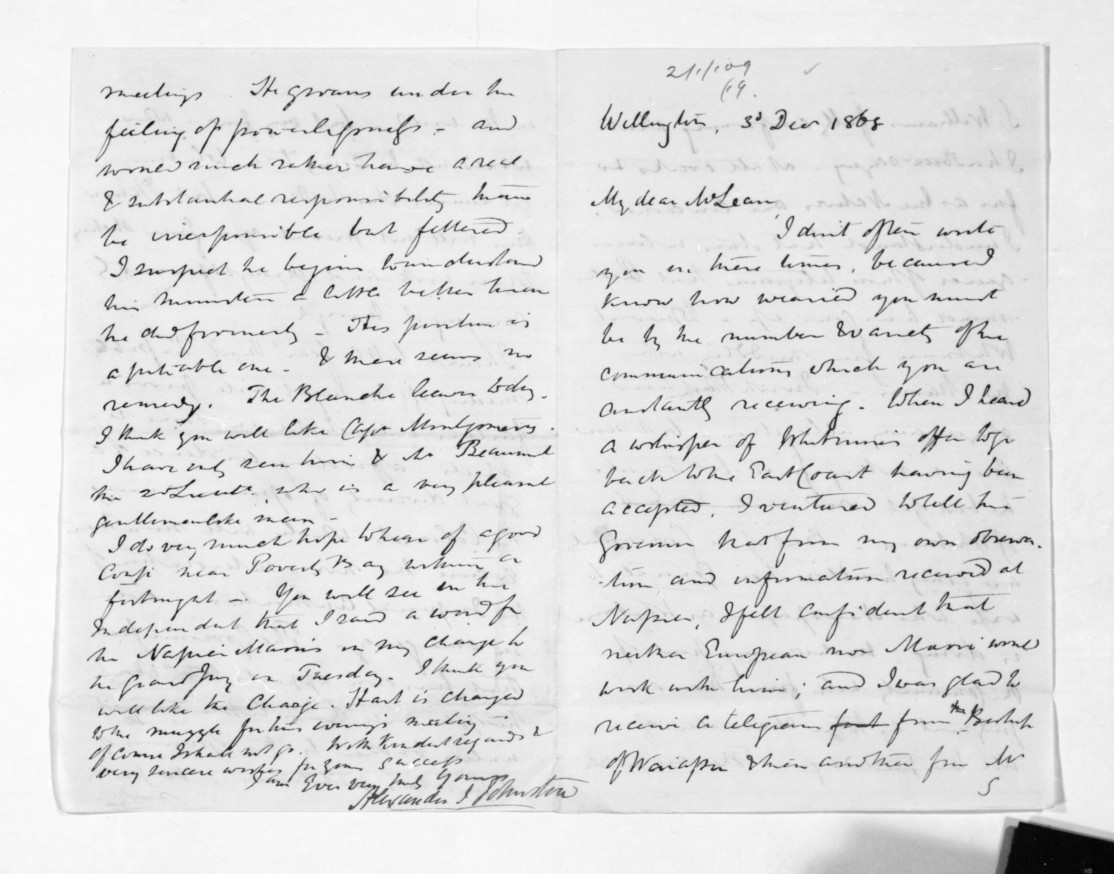 21/1/109
69.
Wellington, 3d Decr 1868
My dear McLean,
I don't often write
you in these times, because I
know how wearied you must
be by the number & variety of the
communications which you are
constantly receiving. When I heard
a whisper of Whitmore's offer to go
back to the East Coast having been
accepted, I ventured to tell the
Governor that from my own observa-
-tion and information received at
Napier, I felt confident that
neither European nor Maori would
work with him; and I was glad to
receive a telegram from the Bishop
of Waiapu & then another from Mr
S
meetings He groans under the
feeling of powerlessness - and
would much rather have a real
& substantial responsibility than
be irresponsible but fettered
I suspect he begins to understand
his ministers a little better than
he did formerly - His position is
a pitiable one - & there seems no
remedy. The Blanche leaves today.
I think you will like Capt Montgomerie.
I have only seen him & Mr Beaumont
the 2d Lieut. who is a very pleasant
gentlemanlike man -
I do very much hope to hear of a good
Coup near Poverty Bay within a
fortnight - You will see in the
Independent that I said a word for
the Napier Maoris in my charge to
the Grand Jury on Tuesday. I think you
will like the Charge. Hart is changed
to the muzzle for this evening's meeting -
Of course I shall not go. With kindest regards &
very sincere wishes for your success
I am Ever very truly Yours
Alexander J Johnston